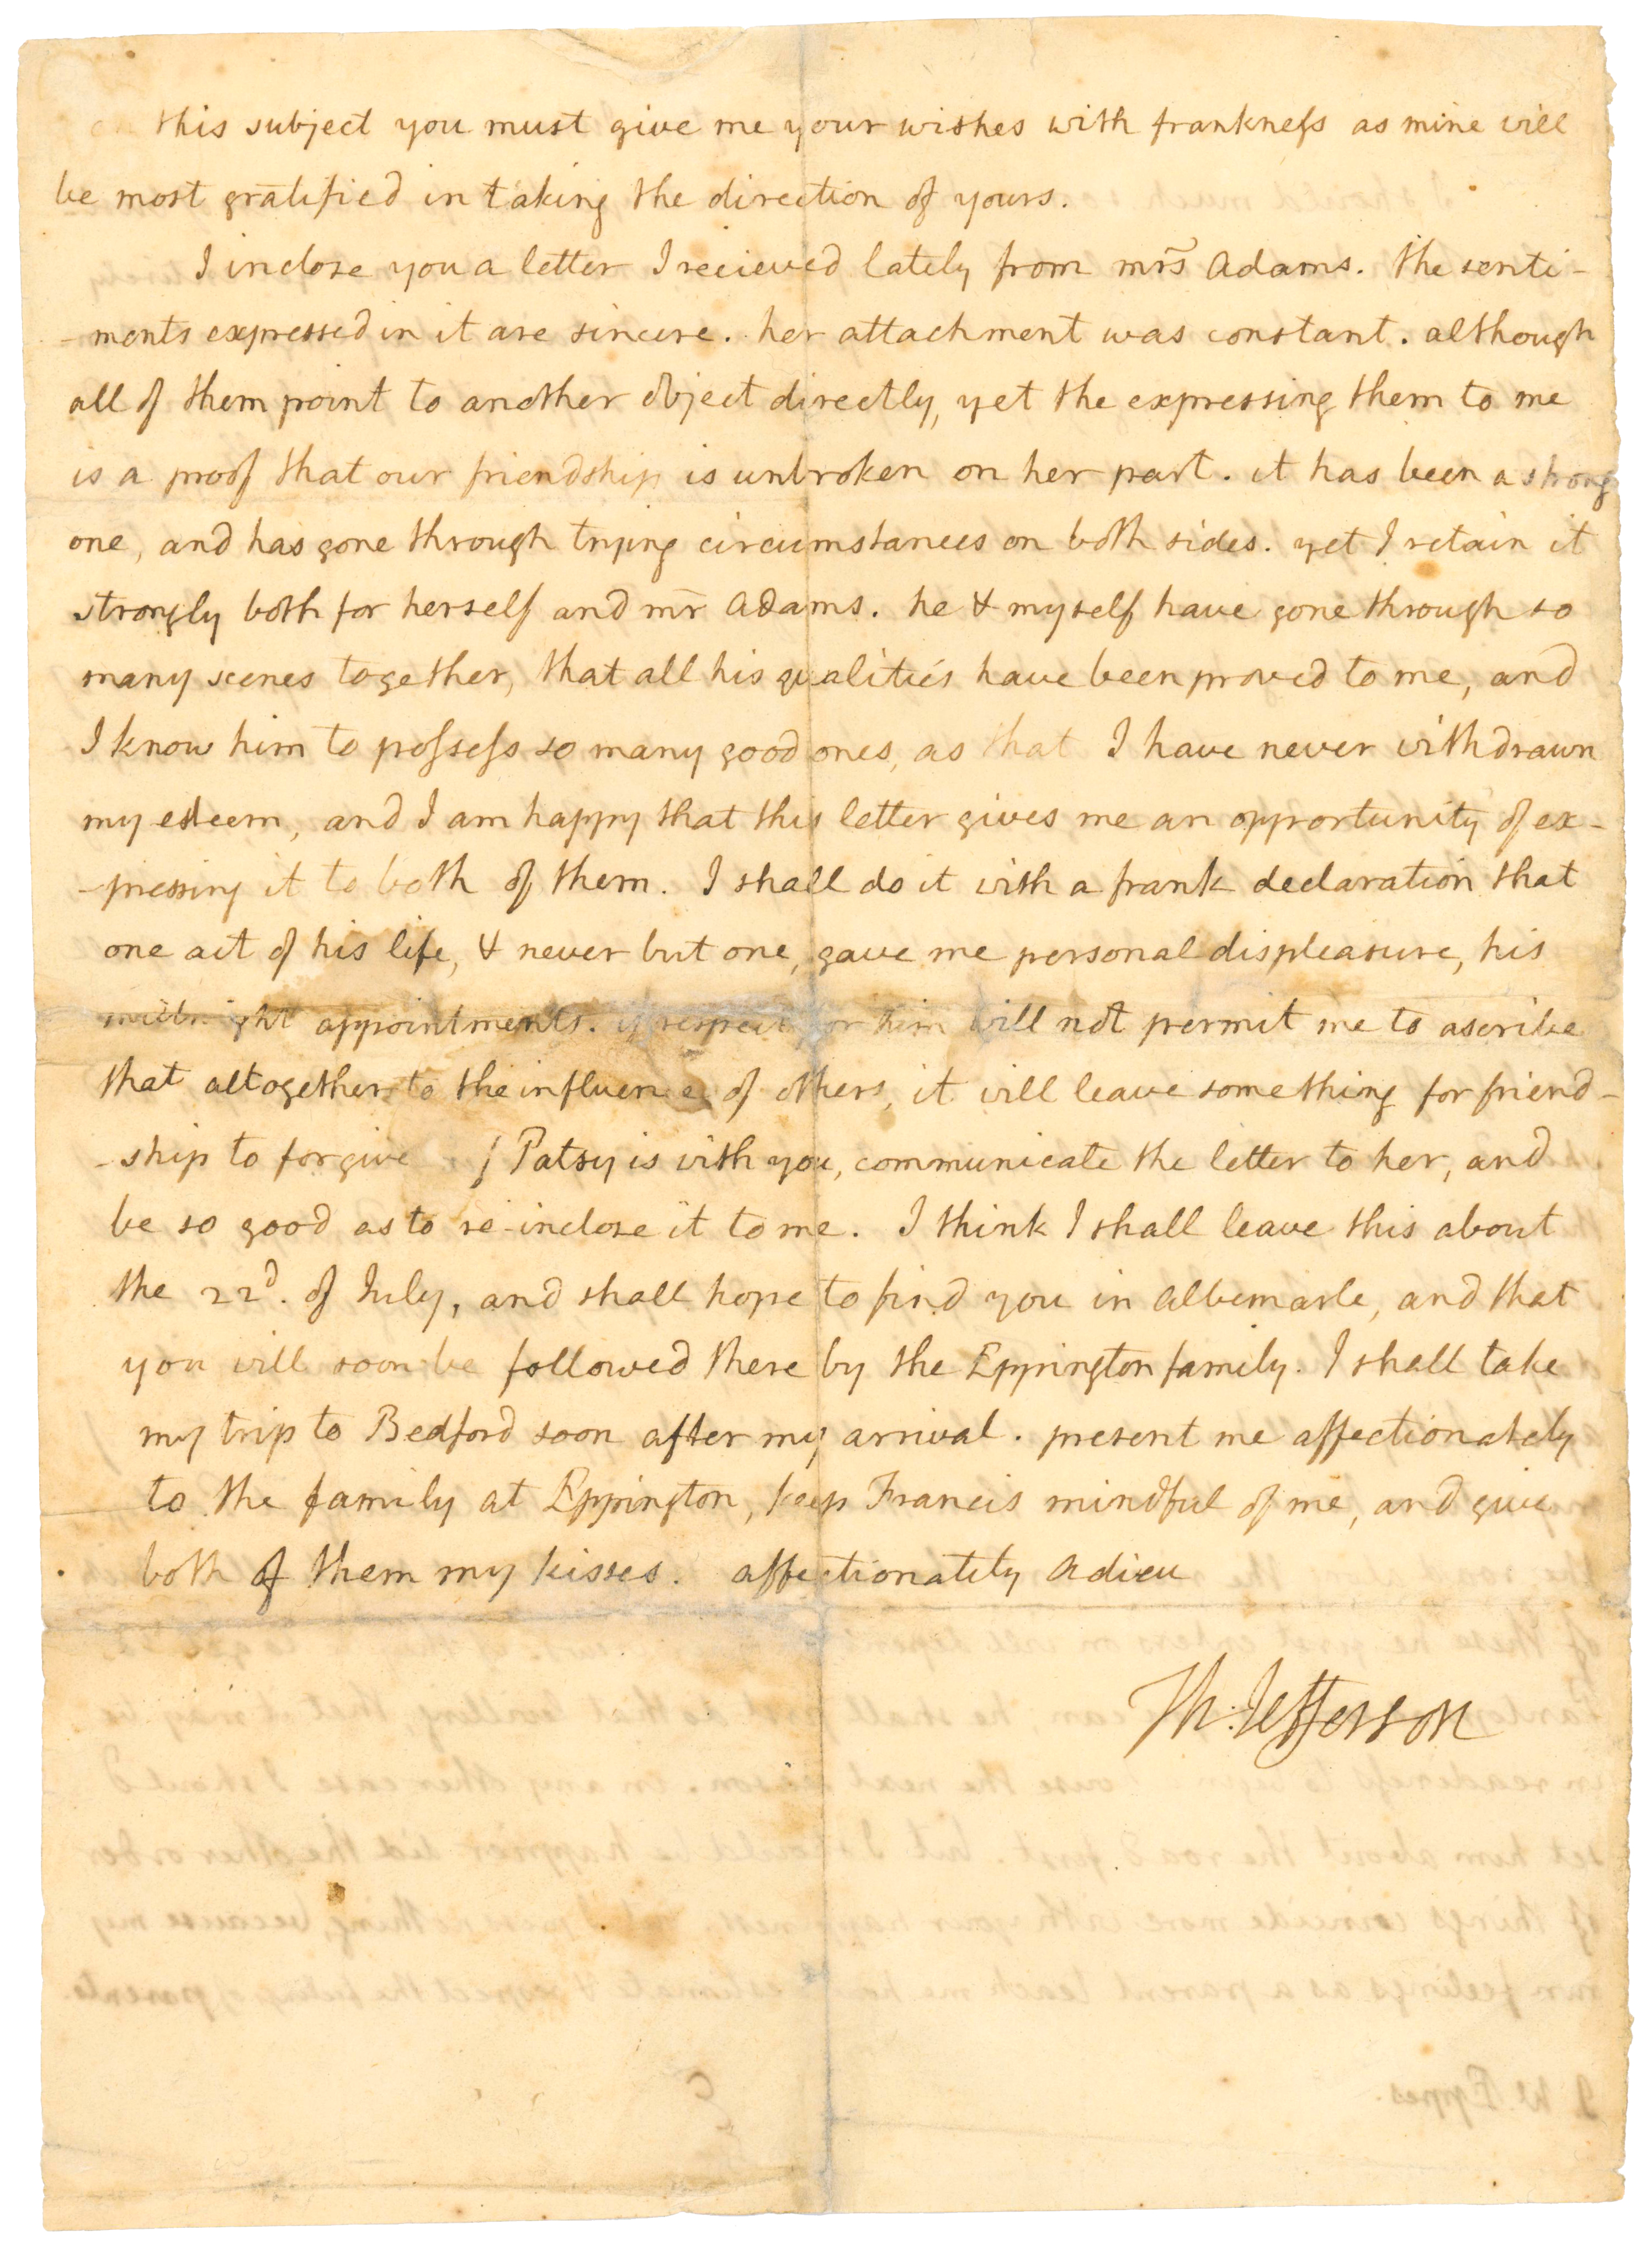 on this subject you must give me your wishes with frankness as mine will
be most gratified in taking the direction of yours.
I inclose you a letter I recieved lately from mrs Adams. the senti-
-ments expressed in it are sincere. her attachment was constant. although
all of them point to another object directly, yet the expressing them to me
is a proof that our friendship is unbroken on her part. it has been a strong
one, and has gone through trying circumstances on both sides. yet I retain it
strongly both for herself and mr Adams. he & myself have gone through so
many scenes together, that all his qualities have been proved to me, and
I know him to possess so many good ones, as that I have never withdrawn
my esteem, and I am happy that this letter gives me an opportunity of ex-
-pressing it to both of them. I shall do it with a frank declaration that
one act of his life, & never but one, gave me personal displeasure, his
midnight appointments. if respect for him will not permit me to ascribe
that altogether to the influence of others, it will leave something for friend-
-ship to forgive Patsy is with you, communicate the letter to her, and
be so good as to re-inclose it to me. I think I shall leave this about
the 22d. of July, and shall hope to find you in Albemarle, and that
you will soon be followed there by the Eppington family. I shall take
my trip to Bedford soon after my arrival. present me affectionately
to the family at Eppington, keep Francis mindful of me, and give
both of them my kisses. affectionately adieu
Th: Jefferson
J W. Eppes.